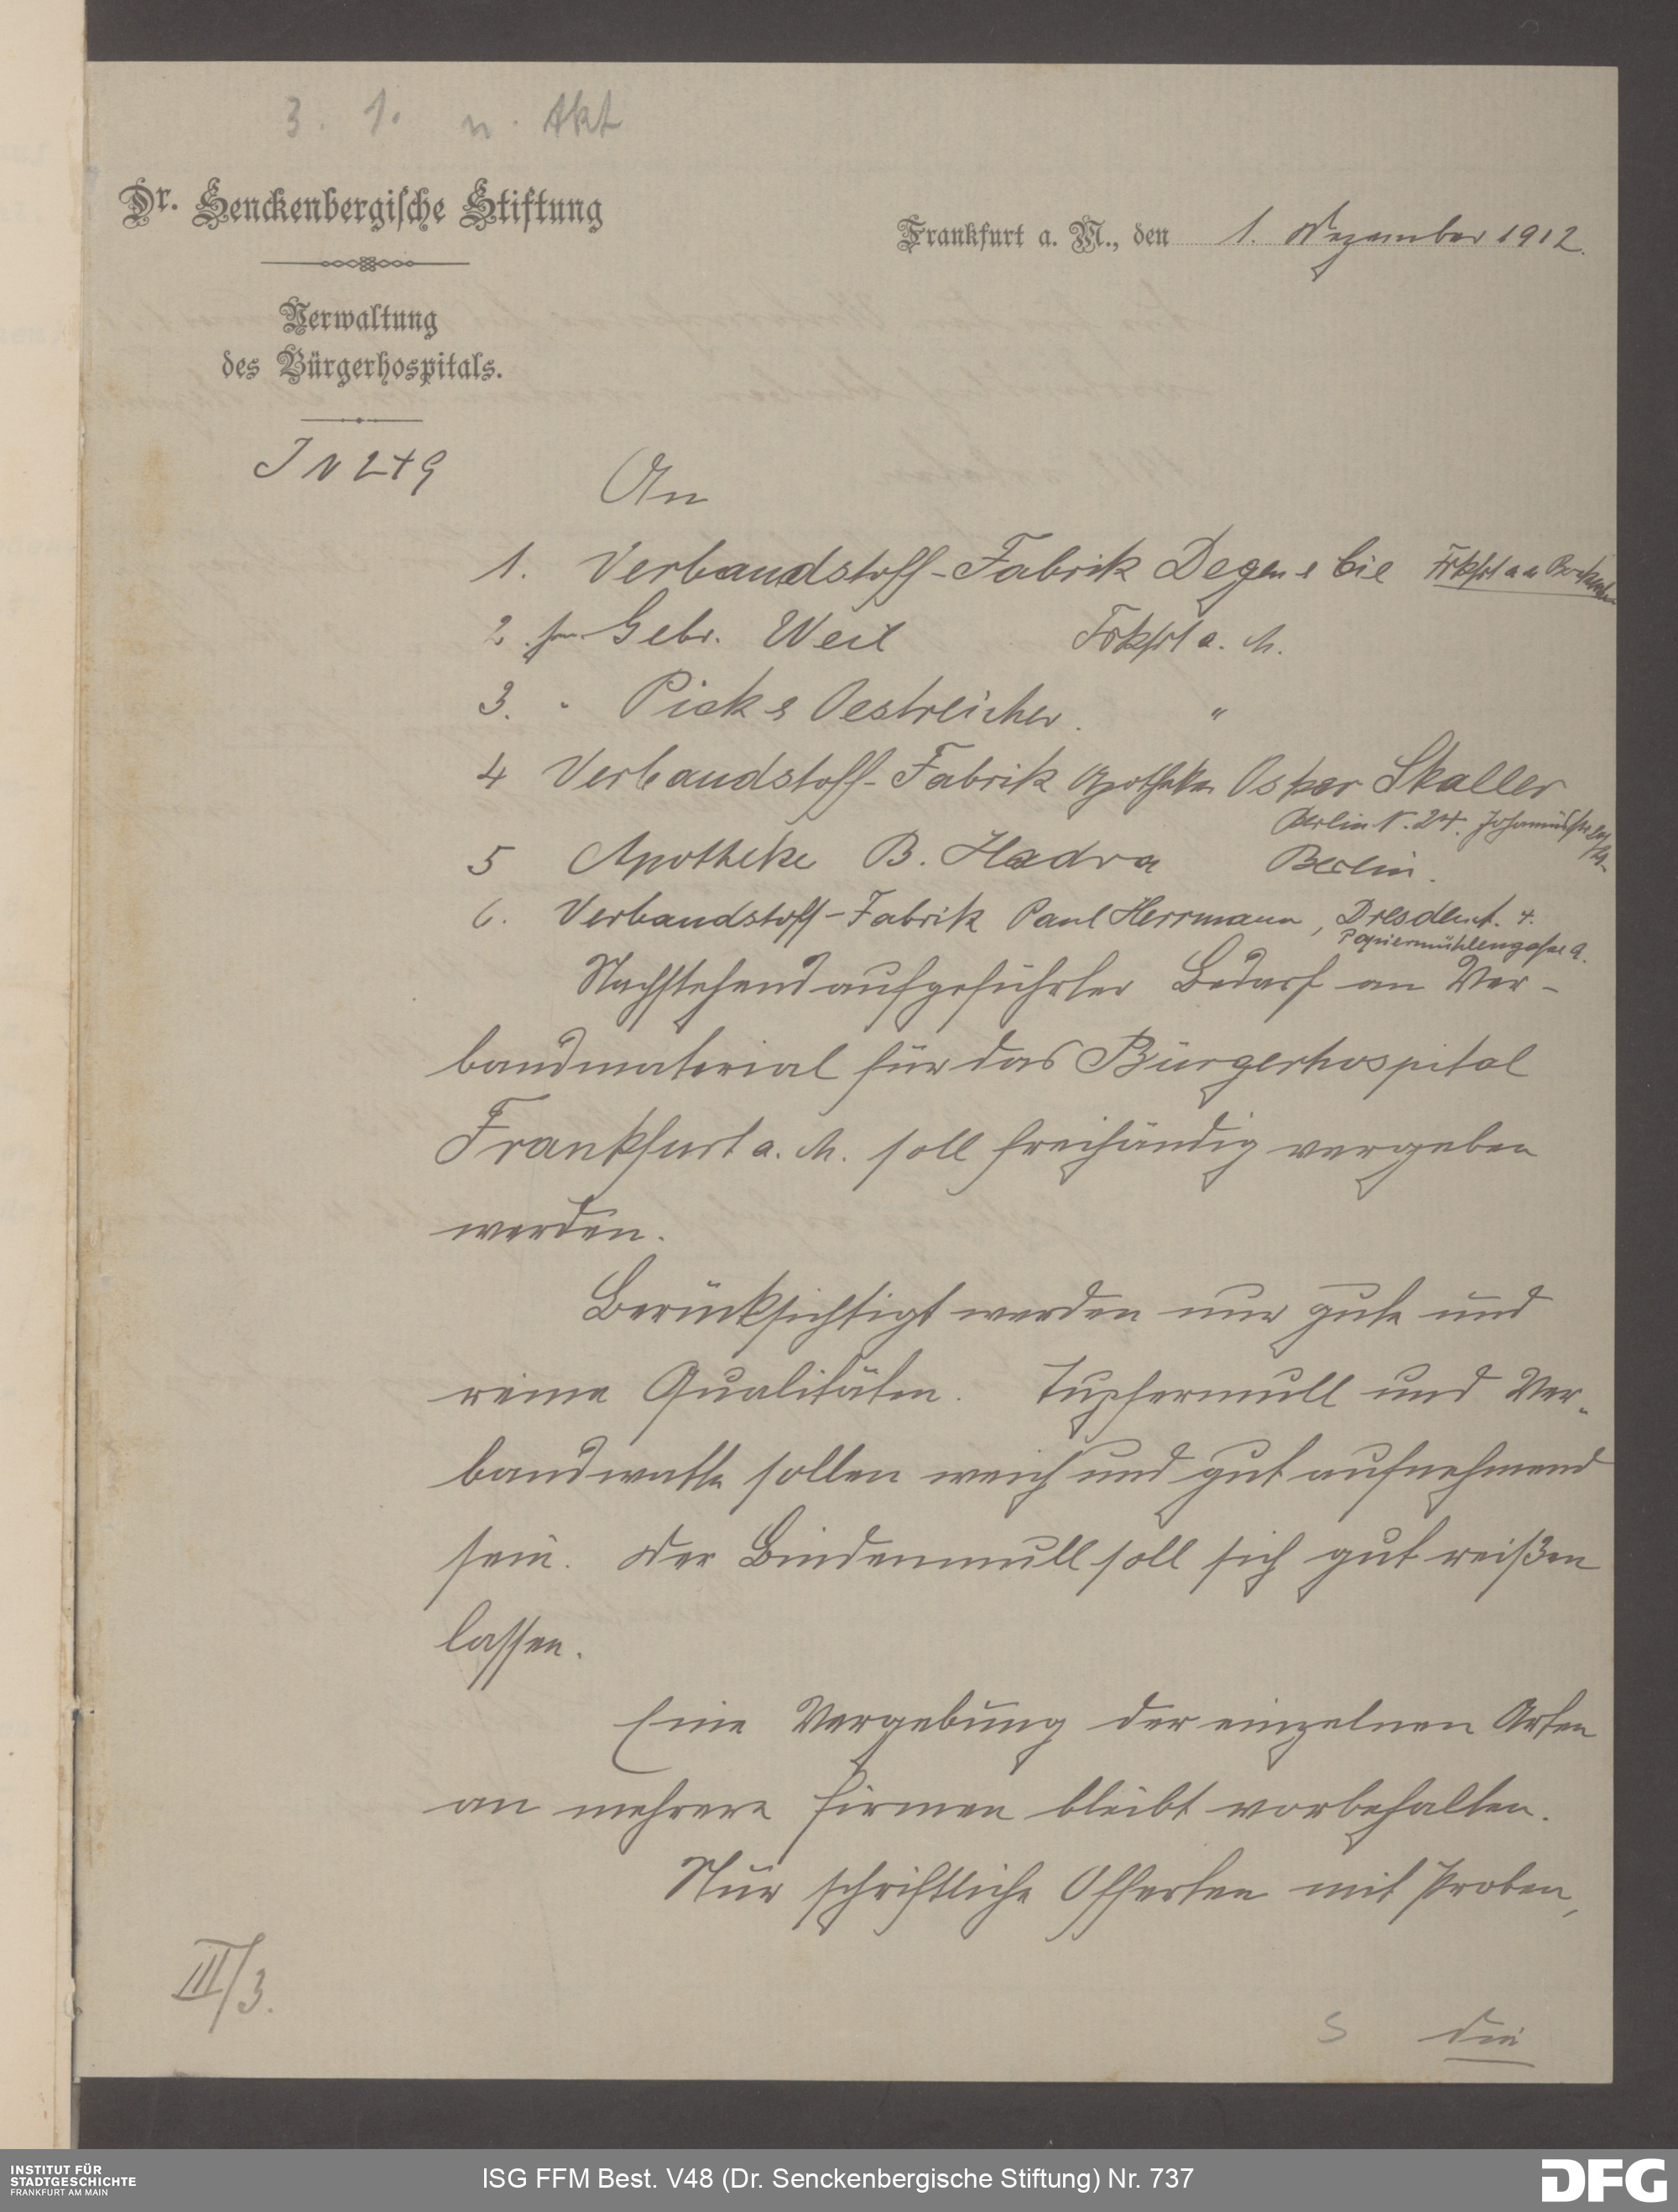 3. 1. n. Akt
Dr. Senckenbergische Stiftung
Frankfurt a. M., den 1. Dezember 1912.
Verwaltung
des Bürgerhospitals.
J N 249
An
1. Verbandstoff-Fabrik Degen & Cie Frkfrt a M Bockenhm
2. Gebr. Weil Frkfrt a. M.
3. " Pick & Oestreicher. "
4 Verbandstoff-Fabrik Apotheker Oskar Skaller
Berlin N. 24. Johannisstr
5 Apotheke B. Hadra Berlin.
6. Verbandstoff-Fabrik Paul Herrmann, Dresden A. 4.
Papiermühlengasse 9.
Nachstehend aufgeführter Bedarf an Ver-
bandmaterial für das Bürgerhospital
Frankfurt a. M. soll freihändig vergeben
werden.
Berücksichtigt werden nur gute und
reine Qualitäten. Tupfermull und Ver-
bandwatte sollen weich und gut aufnehmend
sein. Der Bindenmull soll sich gut reißen
lassen.
Eine Vergebung der einzelnen Arten
an mehrere Firmen bleibt vorbehalten.
Nur schriftliche Offerten mit Proben,
III/3.
die
INSTITUT FÜR
STADTGESCHICHTE
FRANKFURT AM MAIN
ISG FFM Best. V48 (Dr. Senckenbergische Stiftung) Nr. 737
DFG